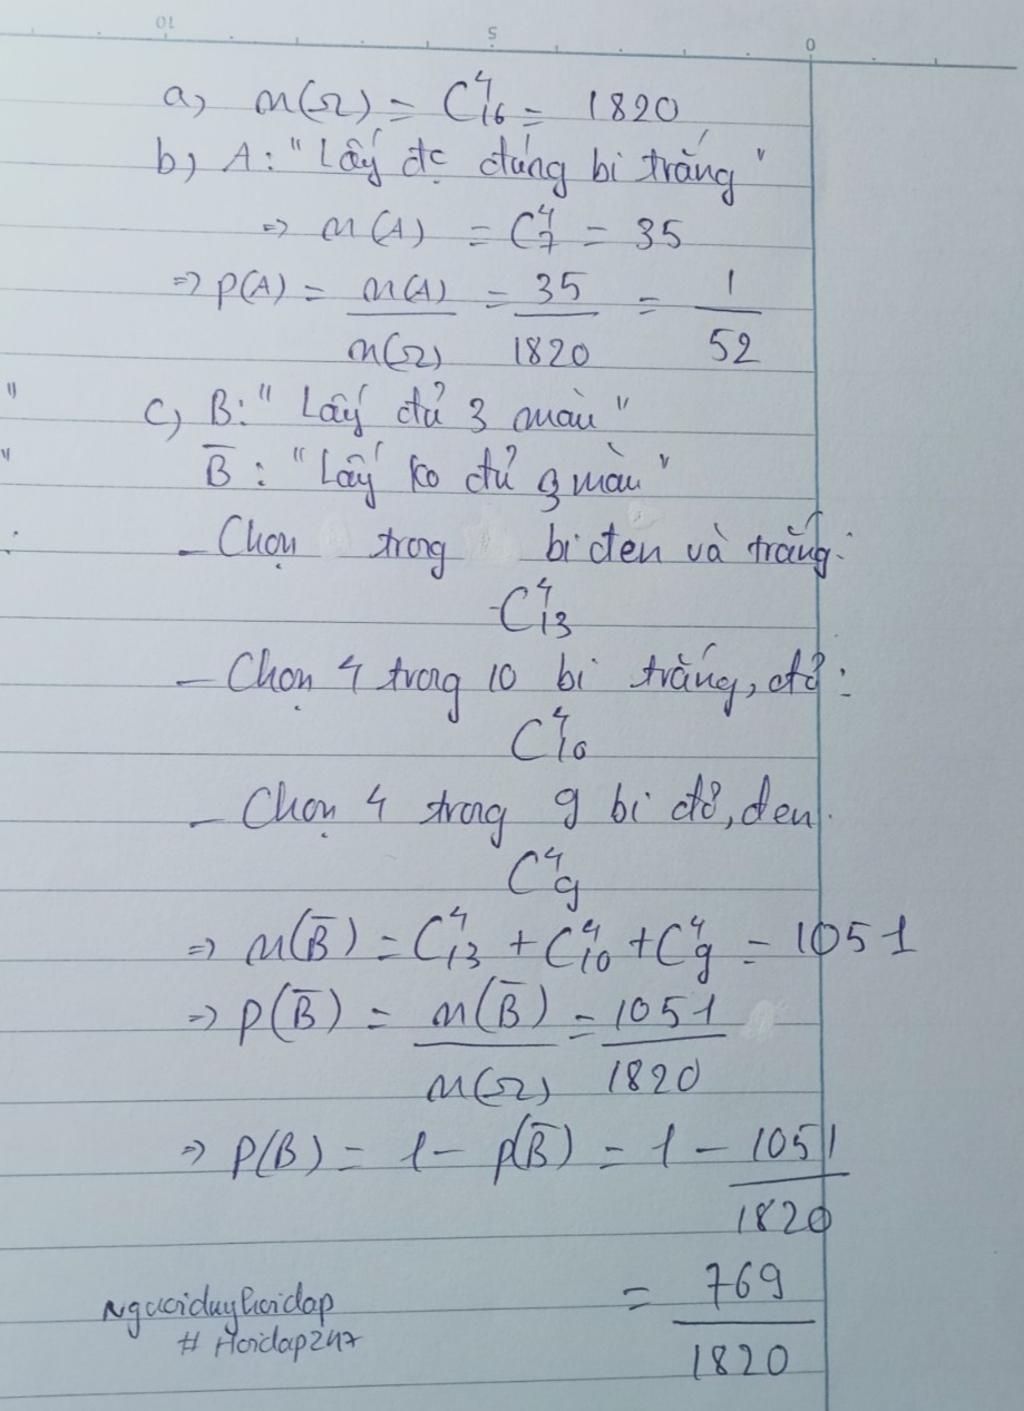 10 5 0
a) n(Ω) = C⁴₁₆ = 1820
b) A: "Lấy đc đúng bi trắng"
=> n(A) = C⁴₇ = 35
=> P(A) = n(A)/n(Ω) = 35/1820 = 1/52
"
c) B: "Lấy đủ 3 màu"
"
B̅: "Lấy ko đủ 3 màu"
- Chọn trong bi đen và trắng:
C⁴₁₃
- Chọn 4 trong 10 bi trắng, đỏ:
C⁴₁₀
- Chọn 4 trong 9 bi đỏ, đen.
C⁴₉
=> n(B̅) = C⁴₁₃ + C⁴₁₀ + C⁴₉ = 1051
=> P(B̅) = n(B̅)/n(Ω) = 1051/1820
=> P(B) = 1 - P(B̅) = 1 - 1051/1820
= 769/1820
Nguoiduyhoidap
# Hoidap247